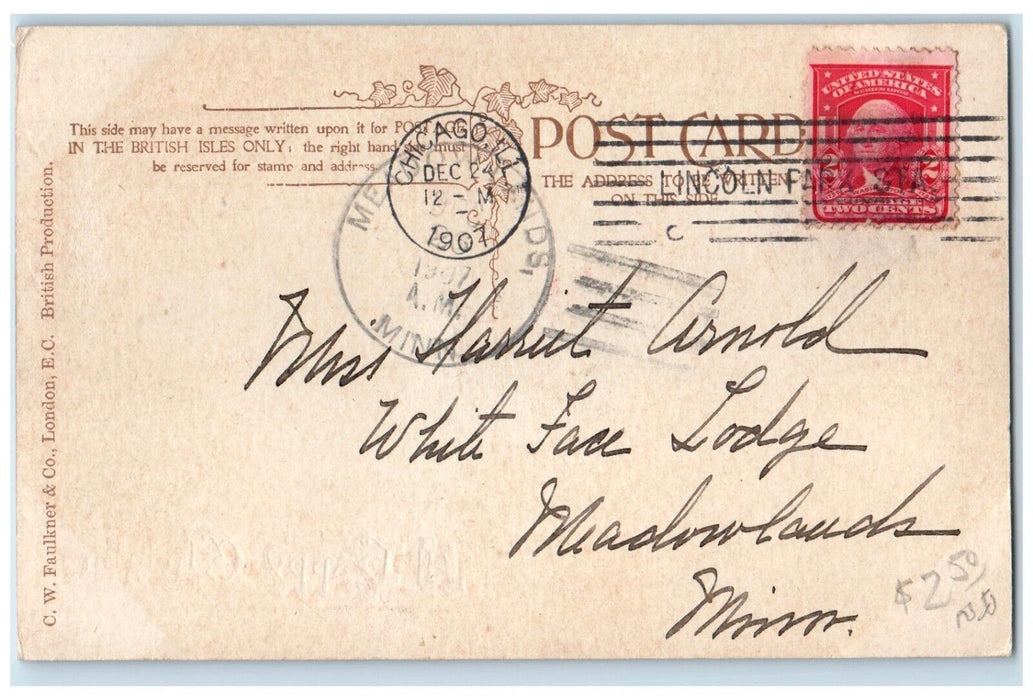 This side may have a message written upon it for POSTAGE
IN THE BRITISH ISLES ONLY; the right hand must
be reserved for stamp and address.
POST CARD
THE ADDRESS TO BE WRITTEN
ON THIS SIDE
CHICAGO, ILL.
DEC 24
12 - M
1907
MEADOWLANDS,
1907
A.M.
MINN.
LINCOLN PARK STA.
C
UNITED STATES
OF AMERICA
2 2
TWO CENTS
C. W. Faulkner & Co., London, E.C. British Production.
Miss Harriet Arnold
White Face Lodge
Meadowlands
Minn.
$2.50